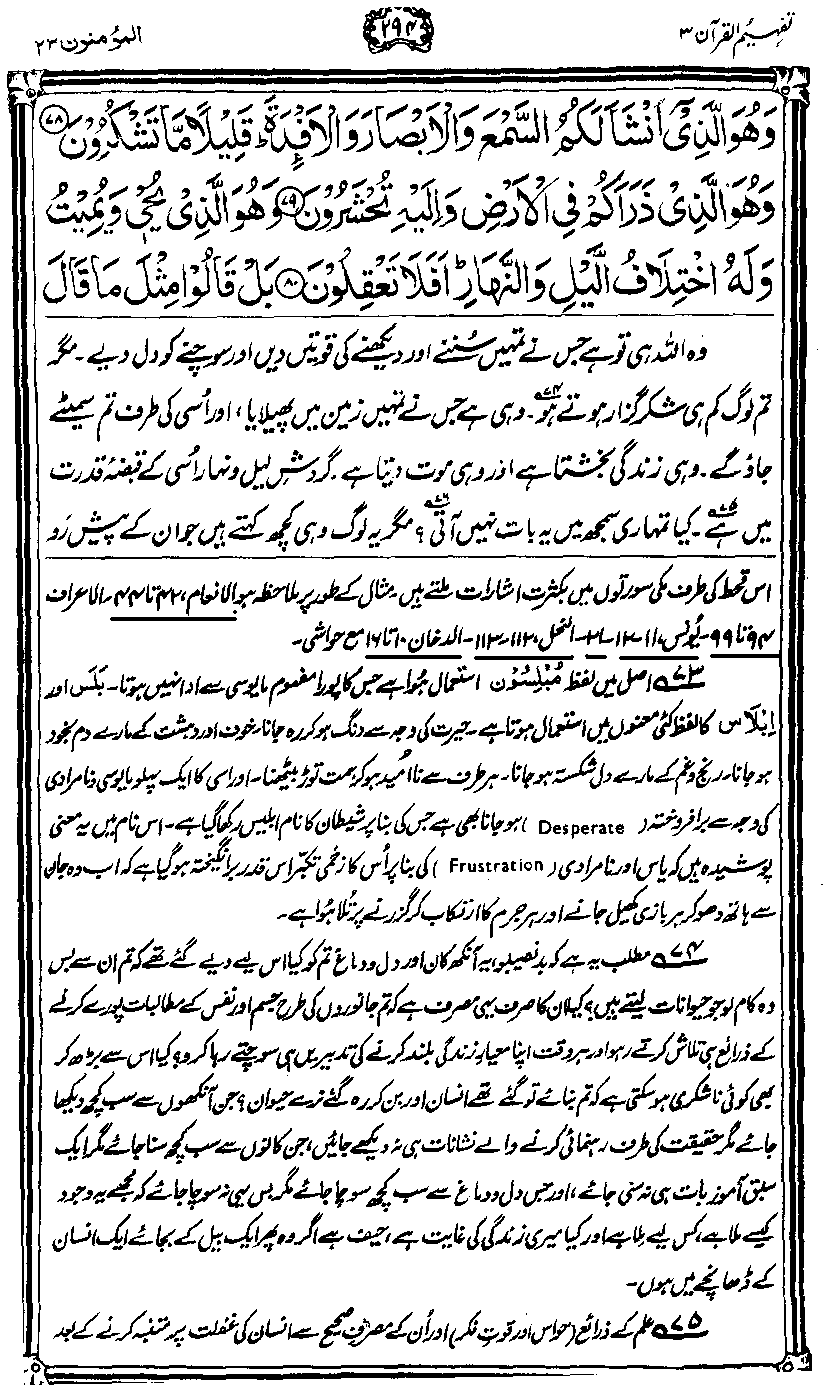 تفہیم القرآن ۳
۲۹۴
المؤمنون ۲۳
وَهُوَ الَّذِیْۤ اَنْشَاَ لَكُمُ السَّمْعَ وَالْاَبْصَارَ وَالْاَفْـِٕدَةَ ؕ قَلِیْلًا مَّا تَشْكُرُوْنَ ﴿۷۸﴾
وَهُوَ الَّذِیْ ذَرَاَكُمْ فِی الْاَرْضِ وَاِلَیْهِ تُحْشَرُوْنَ ﴿۷۹﴾ وَهُوَ الَّذِیْ یُحْیٖ وَیُمِیْتُ
وَلَهُ اخْتِلَافُ الَّیْلِ وَالنَّهَارِ ؕ اَفَلَا تَعْقِلُوْنَ ﴿۸۰﴾ بَلْ قَالُوْا مِثْلَ مَا قَالَ
وہ اللہ ہی تو ہے جس نے تمہیں سُننے اور دیکھنے کی قوتیں دیں اور سوچنے کو دل دیے۔ مگر
تم لوگ کم ہی شکر گزار ہوتے ہو۷۴۔ وہی ہے جس نے تمہیں زمین میں پھیلایا، اور اُسی کی طرف تم سمیٹے
جاؤ گے۔ وہی زندگی بخشتا ہے اور وہی موت دیتا ہے۔ گردشِ لیل و نہار اُسی کے قبضۂ قدرت
میں ہے۷۵۔ کیا تمہاری سمجھ میں یہ بات نہیں آتی۷۶؟ مگر یہ لوگ وہی کچھ کہتے ہیں جو ان کے پیش رَو
اس قحط کی طرف مکی سورتوں میں بکثرت اشارات ملتے ہیں۔ مثال کے طور پر ملاحظہ ہو الانعام، ۴۲ تا ۴۴۔ الاعراف
۹۴ تا ۹۹۔ یونس، ۱۱۔ ۱۲۔ ۲۱۔ النحل، ۱۱۲۔ ۱۱۳۔ الدخان ۱۰ تا ۱۶ مع حواشی۔
۷۳ اصل میں لفظ مُبْلِسُوْن استعمال ہوا ہے جس کا پورا مفہوم مایوسی سے ادا نہیں ہوتا۔ بَلَس اور
اِبْلَاس کا لفظ کئی معنوں میں استعمال ہوتا ہے۔ حیرت کی وجہ سے دنگ ہو کر رہ جانا۔ خوف اور دہشت کے مارے دم بخود
ہو جانا۔ رنج و غم کے مارے دل شکستہ ہو جانا۔ ہر طرف سے نا اُمید ہو کر ہمت توڑ بیٹھنا۔ اور اسی کا ایک پہلو مایوسی و نامرادی
کی وجہ سے برافروختہ (Desperate) ہو جانا بھی ہے جس کی بنا پر شیطان کا نام ابلیس رکھا گیا ہے۔ اس نام میں یہ معنی
پوشیدہ ہیں کہ یاس اور نامرادی (Frustration) کی بنا پر اُس کا زخمی تکبّر اس قدر برانگیختہ ہو گیا ہے کہ اب وہ جان
سے ہاتھ دھو کر ہر بازی کھیل جانے اور ہر جرم کا ارتکاب کر گزرنے پر تُلا ہوا ہے۔
۷۴ مطلب یہ ہے کہ بدنصیبو، یہ آنکھ کان اور دل و دماغ تم کو کیا اس لیے دیے گئے تھے کہ تم ان سے بس
وہ کام لو جو حیوانات لیتے ہیں؟ کیا ان کا صرف یہی مصرف ہے کہ تم جانوروں کی طرح جسم اور نفس کے مطالبات پورے کرنے
کے ذرائع ہی تلاش کرتے رہو اور ہر وقت اپنا معیارِ زندگی بلند کرنے کی تدبیریں ہی سوچتے رہا کرو؟ کیا اس سے بڑھ کر
بھی کوئی ناشکری ہو سکتی ہے کہ تم بنائے تو گئے تھے انسان اور بن کر رہ گئے نرے حیوان؟ جن آنکھوں سے سب کچھ دیکھا
جائے مگر حقیقت کی طرف رہنمائی کرنے والے نشانات ہی نہ دیکھے جائیں، جن کانوں سے سب کچھ سنا جائے مگر ایک
سبق آموز بات ہی نہ سنی جائے، اور جس دل و دماغ سے سب کچھ سوچا جائے مگر بس یہی نہ سوچا جائے کہ مجھے یہ وجود
کیسے ملا ہے، کس لیے ملا ہے اور کیا میری زندگی کی غایت ہے، حیف ہے اگر وہ پھر ایک بیل کے بجائے ایک انسان
کے ڈھانچے میں ہوں۔
۷۵ علم کے ذرائع (حواس اور قوتِ فکر) اور اُن کے مصرفِ صحیح سے انسان کی غفلت پر متنبہ کرنے کے بعد